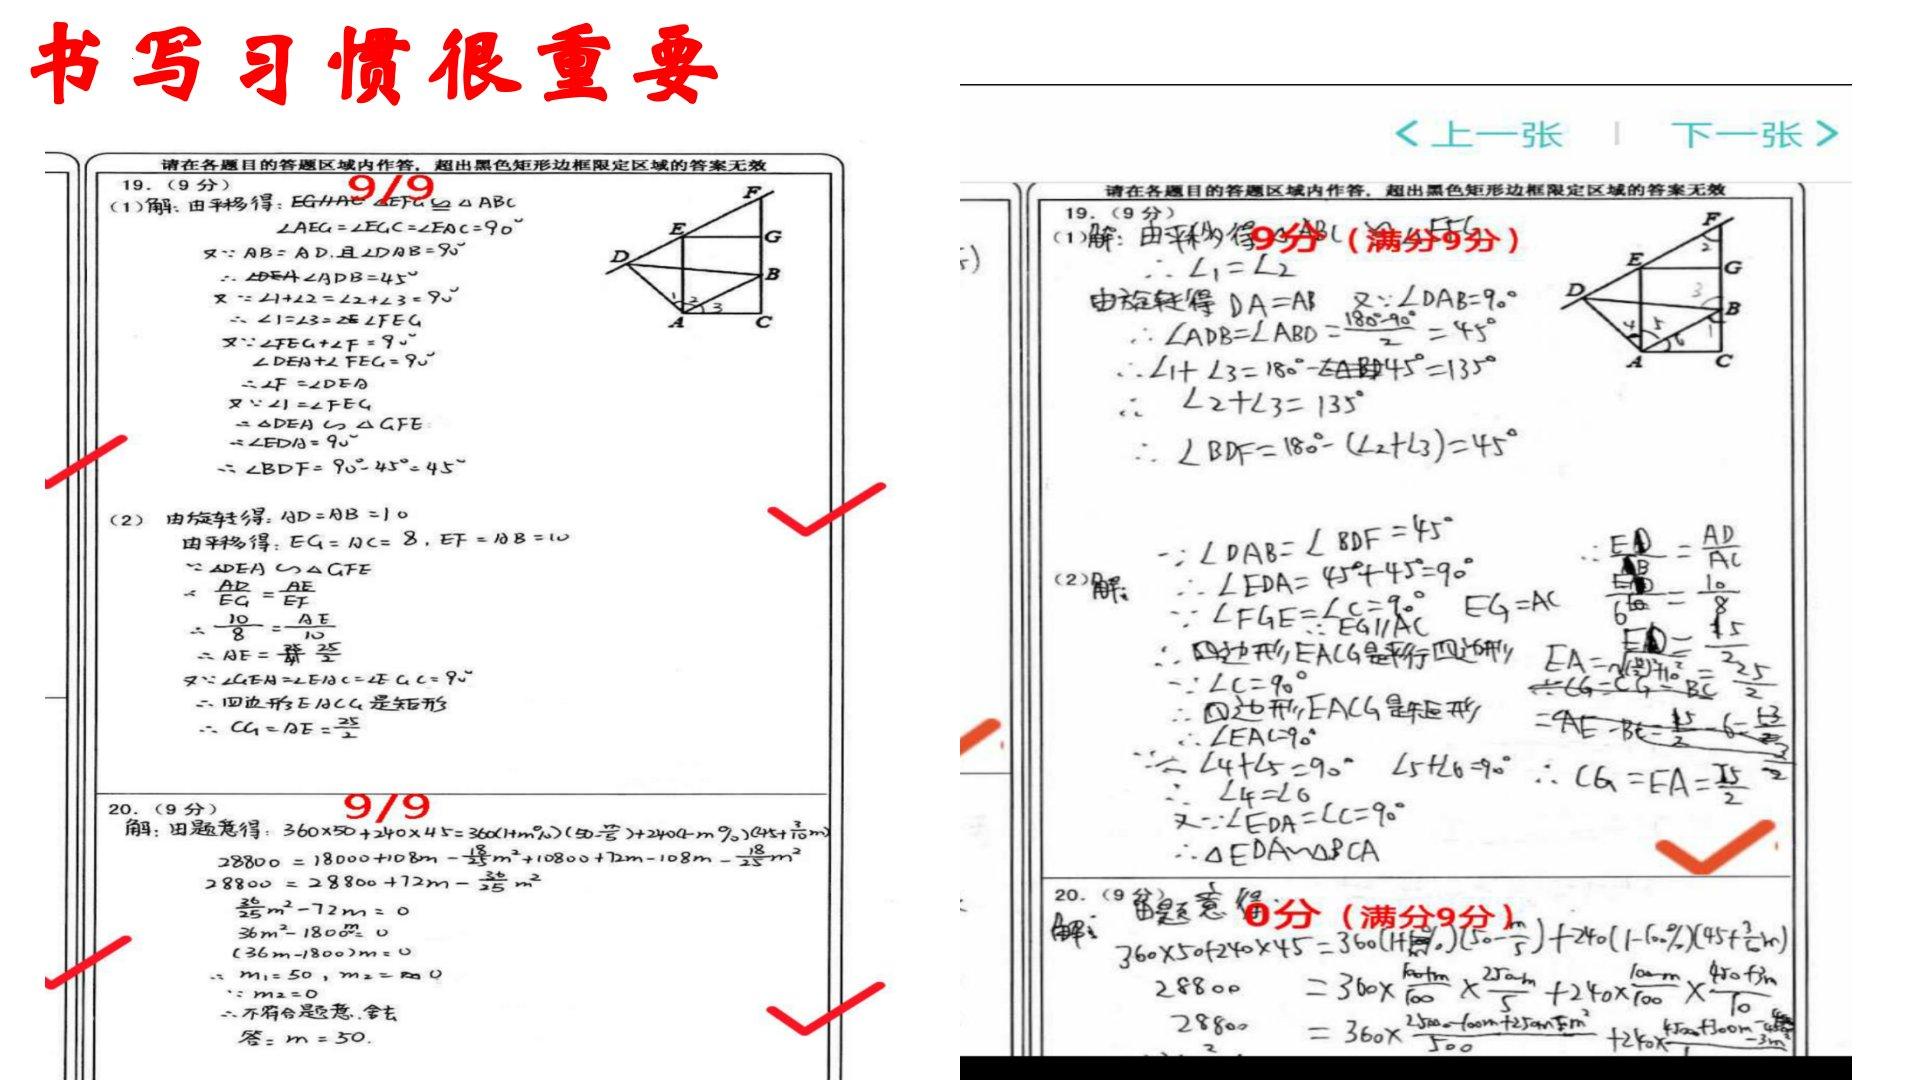 书写习惯很重要
请在各题目的答题区域内作答，超出黑色矩形边框限定区域的答案无效
19.（9分）
9/9
(1)解：由平移得：EG∥AC △EFG≌△ABC
∠AEG=∠EGC=∠EAC=90°
又∵AB=AD,且∠DAB=90°
∴∠DEA∠ADB=45°
又∵∠1+∠2=∠2+∠3=90°
∴∠1=∠3=∠FEG
又∵∠FEG+∠F=90°
∠DEA+∠FEG=90°
∴∠F=∠DEA
又∵∠1=∠FEG
∴△DEA∽△GFE
∴∠EDA=90°
∴∠BDF=90°-45°=45°
F
E
G
D
B
1 2 3
A
C
(2) 由旋转得：AD=AB=10
由平移得：EG=AC=8，EF=AB=10
∵△DEA∽△GFE
∴AD/EG=AE/EF
∴10/8=AE/10
∴AE=25/2
又∵∠GEA=∠EAC=∠EGC=90°
∴四边形EACG是矩形
∴CG=AE=25/2
20.（9分）
9/9
解：由题意得：360×50+240×45=360(1+m%)(50-m/5)+240(1-m%)(45+3/10m)
28800=18000+108m-18/25m²+10800+72m-108m-18/25m²
28800=28800+72m-36/25m²
36/25m²-72m=0
36m²-1800m=0
(36m-1800)m=0
∴m₁=50，m₂=0
∵m₂=0
∴不符合题意，舍去
答：m=50.
<上一张 | 下一张>
请在各题目的答题区域内作答，超出黑色矩形边框限定区域的答案无效
19.（9分）
9分（满分9分）
(1)解：由平移得△ABC≌△EFG
∴∠1=∠2
由旋转得DA=AB 又∵∠DAB=90°
∴∠ADB=∠ABD=180°-90°/2=45°
∴∠1+∠3=180°-45°=135°
∴∠2+∠3=135°
∴∠BDF=180°-(∠2+∠3)=45°
F
2
E
G
D
3
B
4 5 1
6
A
C
(2)解：
∵∠DAB=∠BDF=45°
∴∠EDA=45°+45°=90°
∵∠FGE=∠C=90° EG=AC
∴EG∥AC
∴四边形EACG是平行四边形
∵∠C=90°
∴四边形EACG是矩形
∴∠EAC=90°
∴∠4+∠5=90° ∠5+∠6=90°
∴∠4=∠6
又∵∠EDA=∠C=90°
∴△EDA∽△BCA
∴ED/AB=AD/AC
=10/8
ED=15/2
=25/2
∴CG=EA=25/2
20.（9分）
0分（满分9分）
解：由题意得：
360×50+240×45=360(1+m%)(50-m/5)+240(1-100%)(45+3/10m)
28800=360×100+m/100×250-m/5+240×100-m/100×450+3m/10
28800